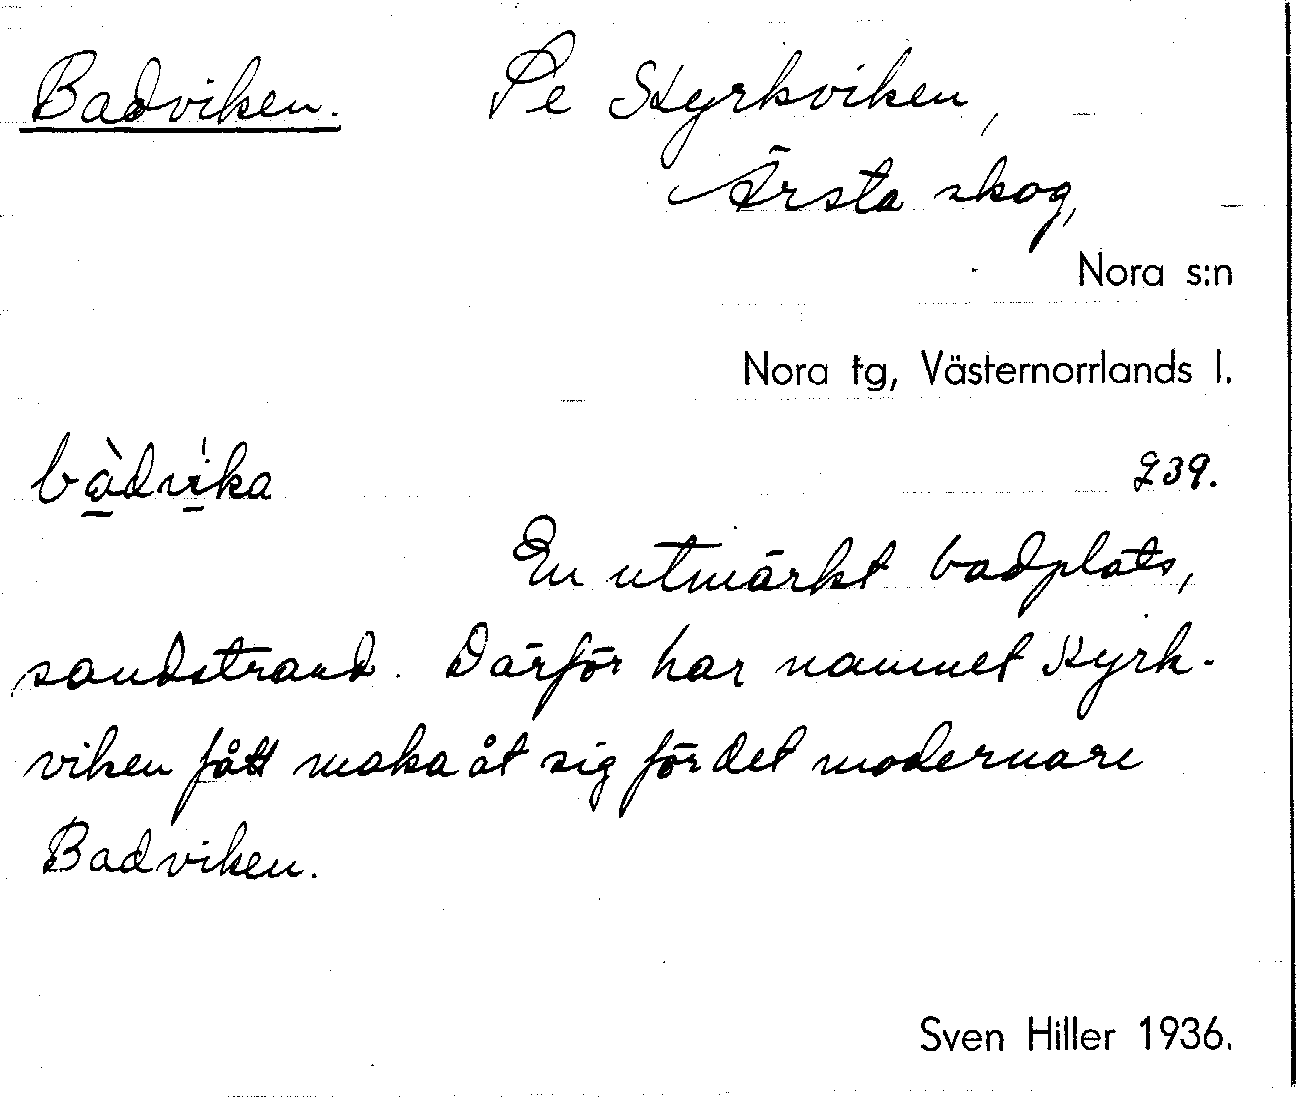 Badviken. Se Styrkviken,
Ärsta skog,
Nora s:n
Nora tg, Västernorrlands l.
bàdvi̍ka 239.
En utmärkt badplats,
sandstrand. Därför har namnet Styrk-
viken fått maka åt sig för det modernare
Badviken.
Sven Hiller 1936.